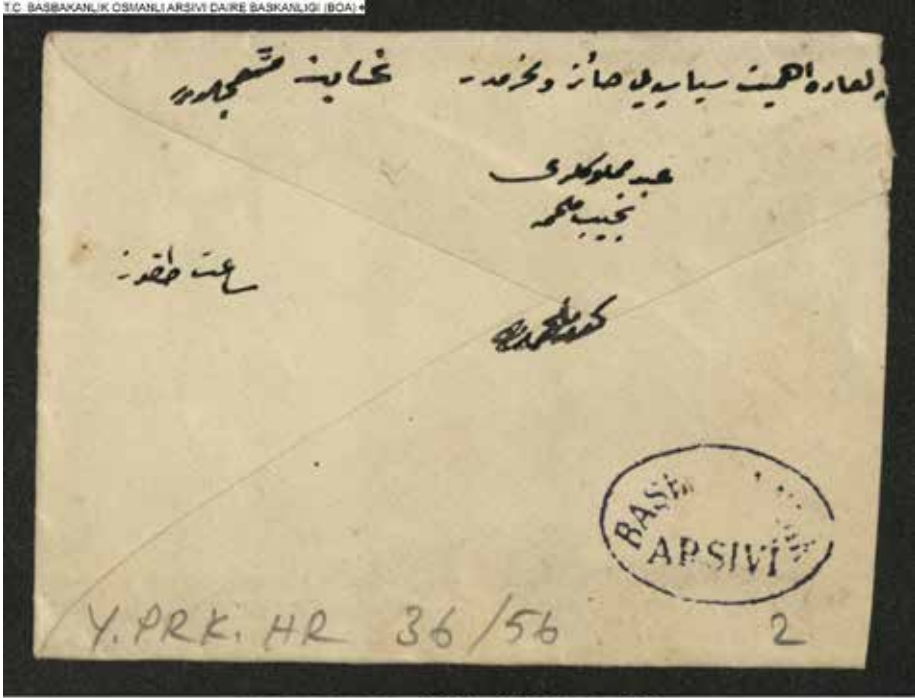 T.C. BASBAKANLIK OSMANLI ARSIVI DAIRE BASKANLIGI (BOA)
اهميت سياسيه يى حائز و محرمدر غايت مستعجلدر
عبد مملوكلرى
نجيب ملحمه
ساعت طقوز
ARSIVI
Y.PRK.HR 36/56 2